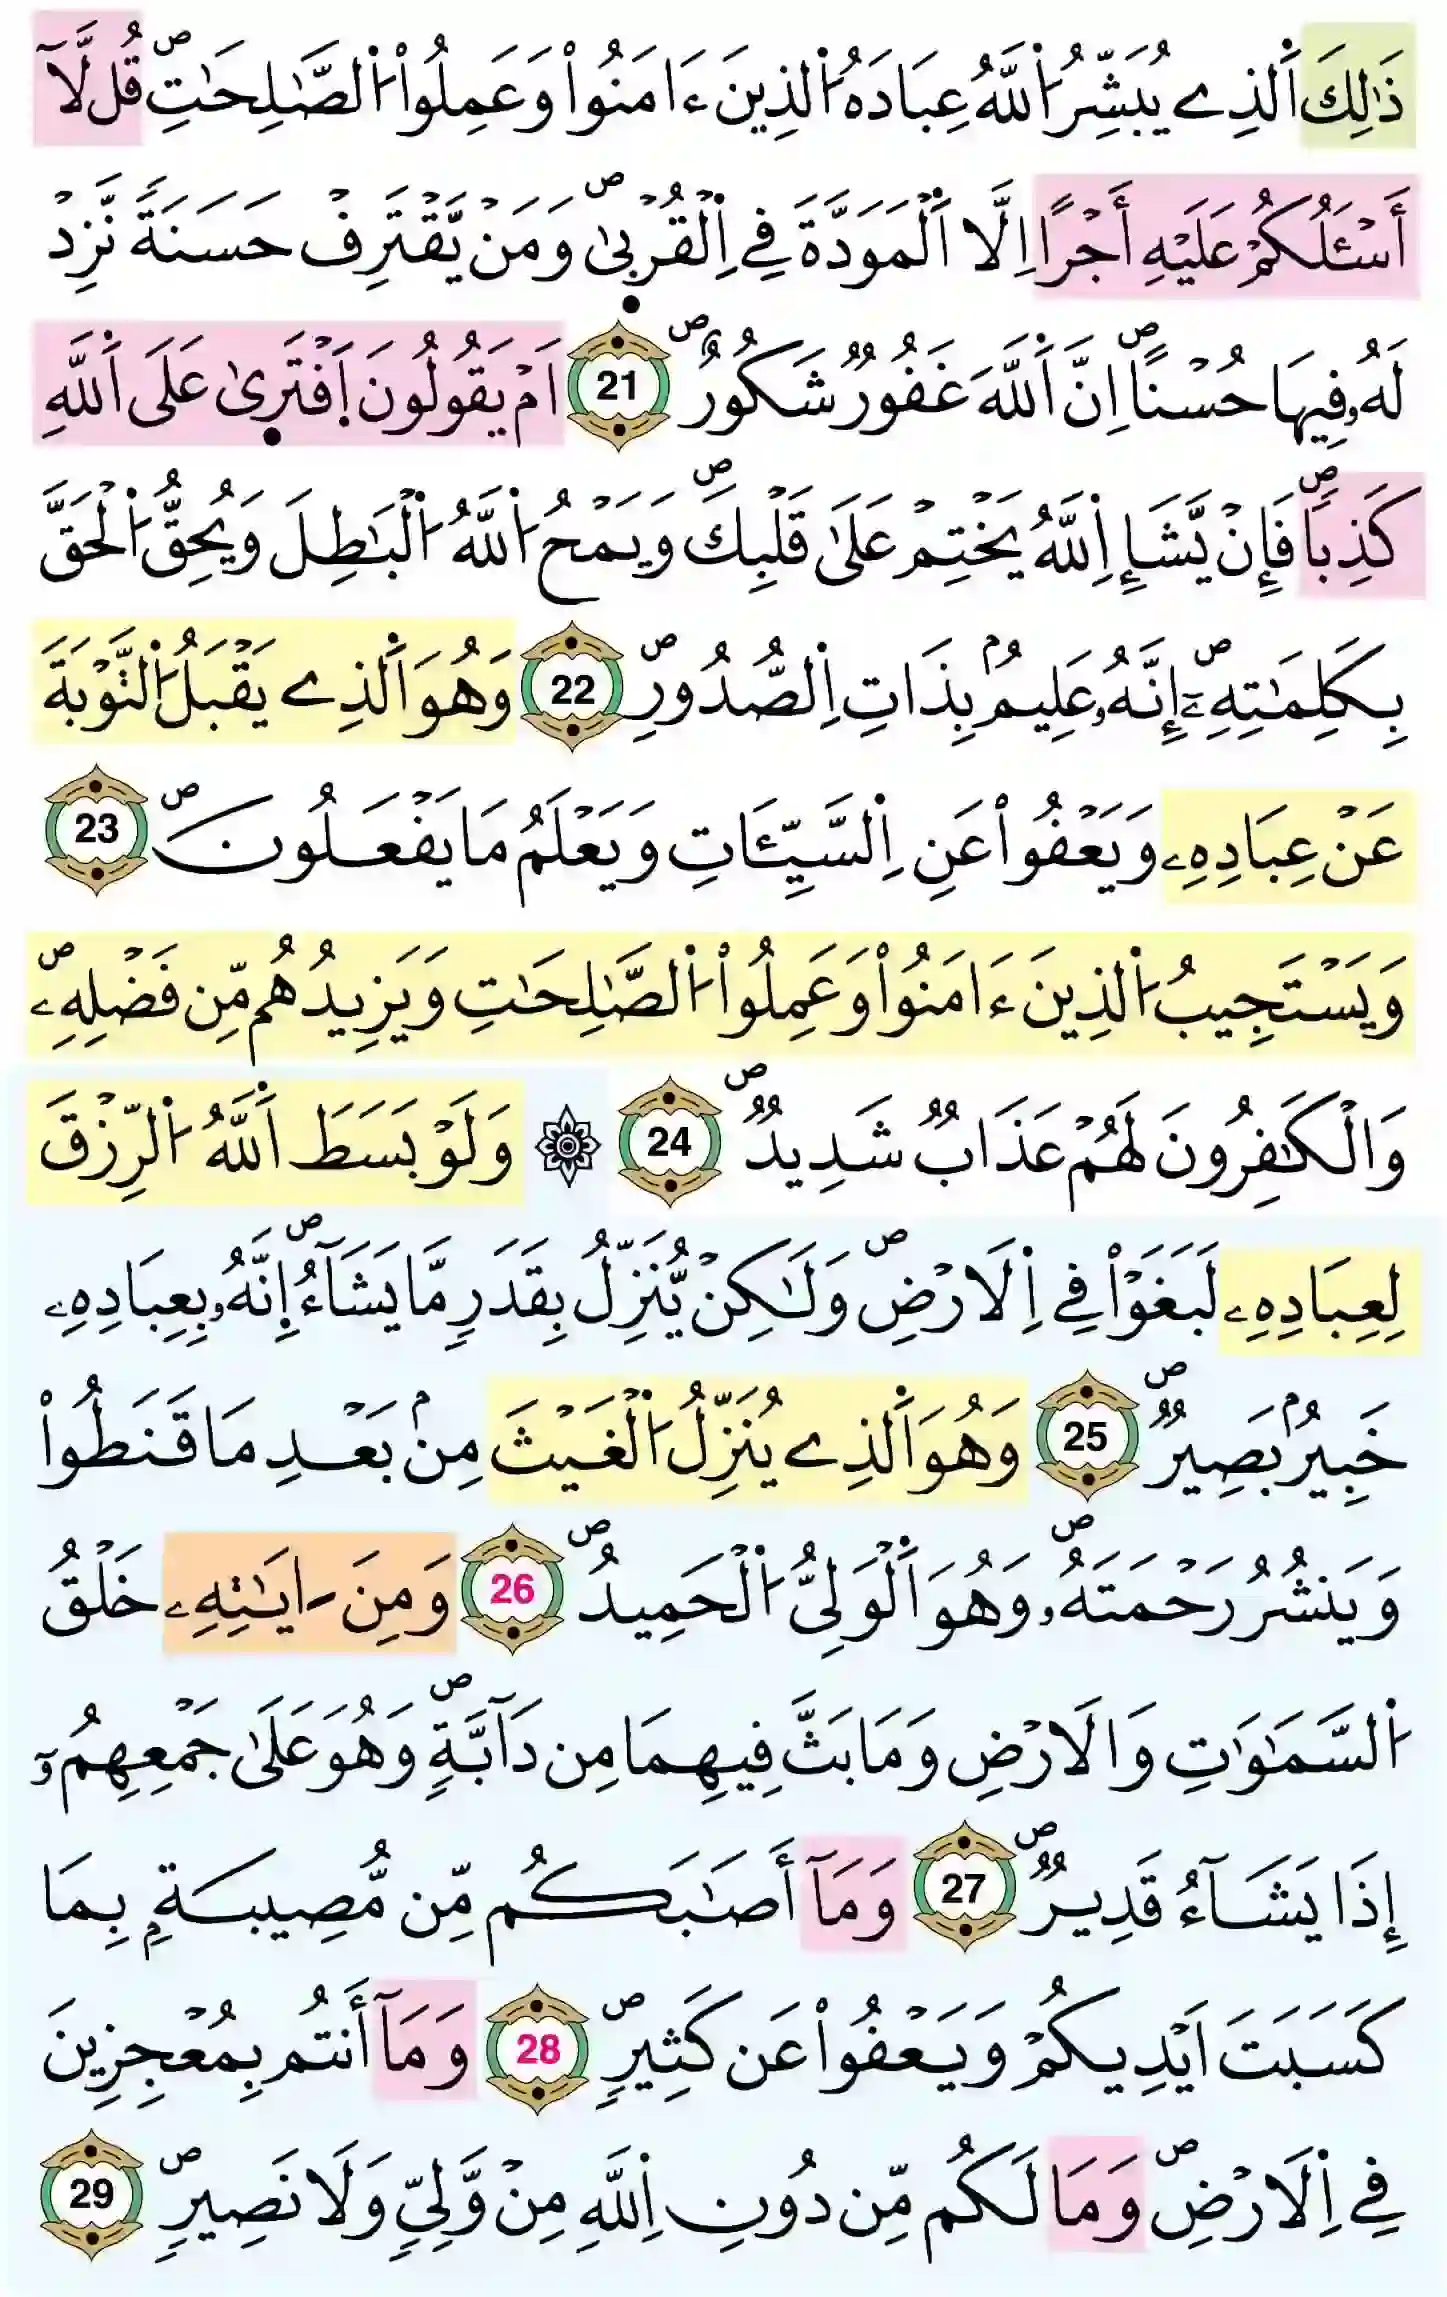 ذَٰلِكَ اَ۬لذِے يُبَشِّرُ اُ۬للَّهُ عِبَادَهُ اُ۬لذِينَ ءَامَنُواْ وَعَمِلُواْ اُ۬لصَّٰلِحَٰتِۖ قُل لَّآ
أَسْـَٔلُكُمْ عَلَيْهِ أَجْراً اِلَّا اَ۬لْمَوَدَّةَ فِے اِ۬لْقُرْب۪يٰۖ وَمَنْ يَّقْتَرِفْ حَسَنَةٗ نَّزِدْ
لَهُۥ فِيهَا حُسْناًۖ اِنَّ اَ۬للَّهَ غَفُورٞ شَكُورٌۖ 21 اَمْ يَقُولُونَ اَ۪فْتَر۪يٰ عَلَى اَ۬للَّهِ
كَذِباٗۖ فَإِنْ يَّشَإِ اِ۬للَّهُ يَخْتِمْ عَلَىٰ قَلْبِكَۖ وَيَمْحُ اُ۬للَّهُ اُ۬لْبَٰطِلَ وَيُحِقُّ اُ۬لْحَقَّ
بِكَلِمَٰتِهِۦٓۖ إِنَّهُۥ عَلِيمُۢ بِذَاتِ اِ۬لصُّدُورِۖ 22 وَهُوَ اَ۬لذِے يَقْبَلُ اُ۬لتَّوْبَةَ
عَنْ عِبَادِهِۦ وَيَعْفُواْ عَنِ اِ۬لسَّيِّـَٔاتِ وَيَعْلَمُ مَا يَفْعَلُونَۖ 23
وَيَسْتَجِيبُ اُ۬لذِينَ ءَامَنُواْ وَعَمِلُواْ اُ۬لصَّٰلِحَٰتِ وَيَزِيدُهُم مِّن فَضْلِهِۦۖ
وَالْكَٰفِرُونَ لَهُمْ عَذَابٞ شَدِيدٞۖ 24 ۞ وَلَوْ بَسَطَ اَ۬للَّهُ اُ۬لرِّزْقَ
لِعِبَادِهِۦ لَبَغَوْاْ فِے اِ۬لَارْضِۖ وَلَٰكِنْ يُّنَزِّلُ بِقَدَرٖ مَّا يَشَآءُۖ اِنَّهُۥ بِعِبَادِهِۦ
خَبِيرُۢ بَصِيرٞۖ 25 وَهُوَ اَ۬لذِے يُنَزِّلُ اُ۬لْغَيْثَ مِنۢ بَعْدِ مَا قَنَطُواْ
وَيَنشُرُ رَحْمَتَهُۥۖ وَهُوَ اَ۬لْوَلِيُّ اُ۬لْحَمِيدُۖ 26 وَمِنَ اٰيَٰتِهِۦ خَلْقُ
اُ۬لسَّمَٰوَٰتِ وَالَارْضِ وَمَا بَثَّ فِيهِمَا مِن دَآبَّةٖۖ وَهُوَ عَلَىٰ جَمْعِهِمُۥٓ
إِذَا يَشَآءُ قَدِيرٞۖ 27 وَمَآ أَصَٰبَكُم مِّن مُّصِيبَةِۢ بِمَا
كَسَبَتَ اَيْدِيكُمْ وَيَعْفُواْ عَن كَثِيرٖۖ 28 وَمَآ أَنتُم بِمُعْجِزِينَ
فِے اِ۬لَارْضِۖ وَمَا لَكُم مِّن دُونِ اِ۬للَّهِ مِنْ وَّلِيّٖ وَلَا نَصِيرٖۖ 29